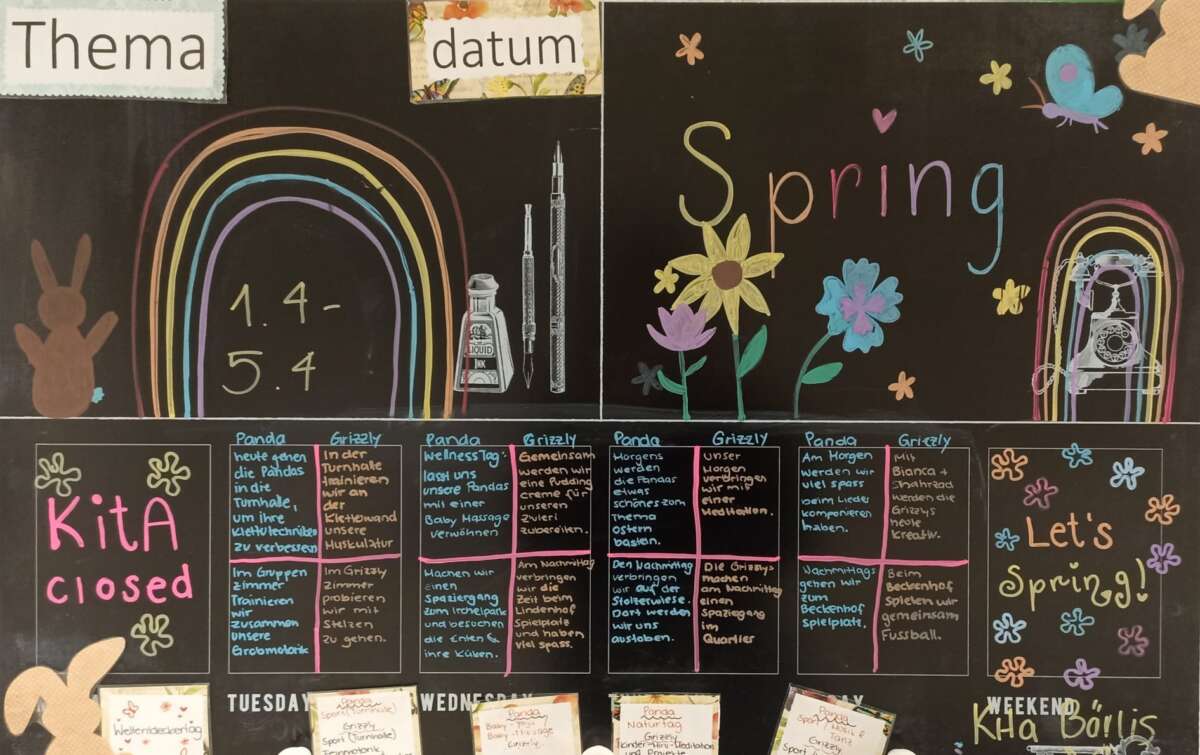 Thema
datum
Spring
1.4-
5.4
LIQUID
INK
KitA
closed
Panda
heute gehen
die Pandas
in die
Turnhalle,
um ihre
zu verbessern
Grizzly
In der
Turnhalle
trainieren
wir an
der
Kletterwand
unsere
Muskulatur
Im Gruppen
zimmer
Trainieren
wir
zusammen
unsere
Grobmotorik
Im Grizzly
zimmer
probieren
wir mit
Stelzen
zu gehen.
Panda
Wellness Tag:
lasst uns
unsere Pandas
mit einer
Baby Massage
verwöhnen
Grizzly
Gemeinsam
werden wir
eine Pudding
creme für
unseren
zvieri
zubereiten.
Machen wir
einen
Spaziergang
zum Irchelpark
und besuchen
die Enten &
ihre Küken.
Am Nachmittag
verbringen
wir die
Zeit beim
Lindenhof
Spielplatz
und haben
viel spass.
Panda
Morgens
werden
die Pandas
etwas
schönes zom
Thema
Ostern
basteln.
Grizzly
Unser
Morgen
verbringen
wir mit
einer
Meditation.
Den Nachmittag
verbringen
wir auf der
Stolzewiese.
Dort werden
wir uns
austoben.
Die Grizzlys
machen
am Nachmittag
einen
Spaziergang
im
Quartier
Panda
Am Morgen
werden wir
viel spass
beim Lieder
komponieren
haben.
Grizzly
Mit
Bianca +
Shahrzad
werden die
Grizzlys
heute
kreativ.
Nachmittags
gehen wir
zum
Beckenhof
Spielplatz.
Beim
Beckenhof
Spielen wir
gemeinsam
Fussball.
Let's
Spring!
TUESDAY
WEDNESDAY
WEEKEND
Kita Börlis
Weltentdeckertag
Sport (Turnhalle)
Grizzly
Sport (Turnhalle)
Panda
Baby-Massage
Grizzly
Panda
Naturtag
Grizzly
Kinder-Mini-Meditation
und Projekte
Panda
Tanz
Grizzly